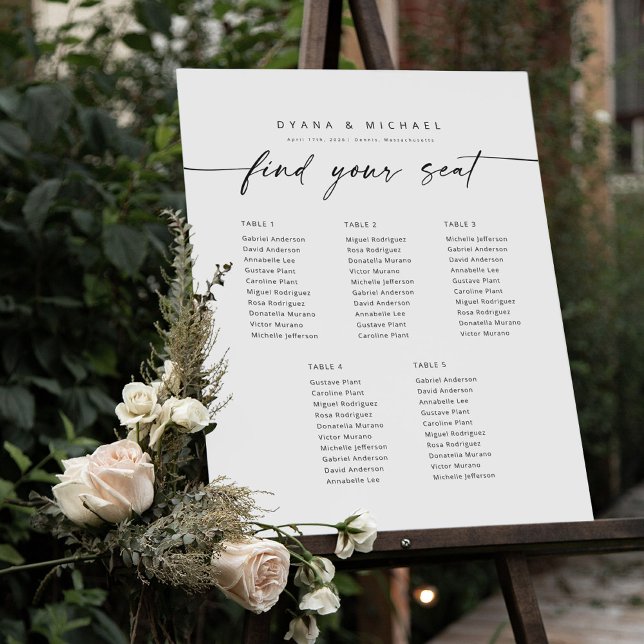 DYANA & MICHAEL
April 17th, 2026| Dennis, Massachusetts
find your seat
TABLE 1
Gabriel Anderson
David Anderson
Annabelle Lee
Gustave Plant
Caroline Plant
Miguel Rodriguez
Rosa Rodriguez
Donatella Murano
Victor Murano
Michelle Jefferson
TABLE 2
Miguel Rodriguez
Rosa Rodriguez
Donatella Murano
Victor Murano
Michelle Jefferson
Gabriel Anderson
David Anderson
Annabelle Lee
Gustave Plant
Caroline Plant
TABLE 3
Michelle Jefferson
Gabriel Anderson
David Anderson
Annabelle Lee
Gustave Plant
Caroline Plant
Miguel Rodriguez
Rosa Rodriguez
Donatella Murano
Victor Murano
TABLE 4
Gustave Plant
Caroline Plant
Miguel Rodriguez
Rosa Rodriguez
Donatella Murano
Victor Murano
Michelle Jefferson
Gabriel Anderson
David Anderson
Annabelle Lee
TABLE 5
Gabriel Anderson
David Anderson
Annabelle Lee
Gustave Plant
Caroline Plant
Miguel Rodriguez
Rosa Rodriguez
Donatella Murano
Victor Murano
Michelle Jefferson